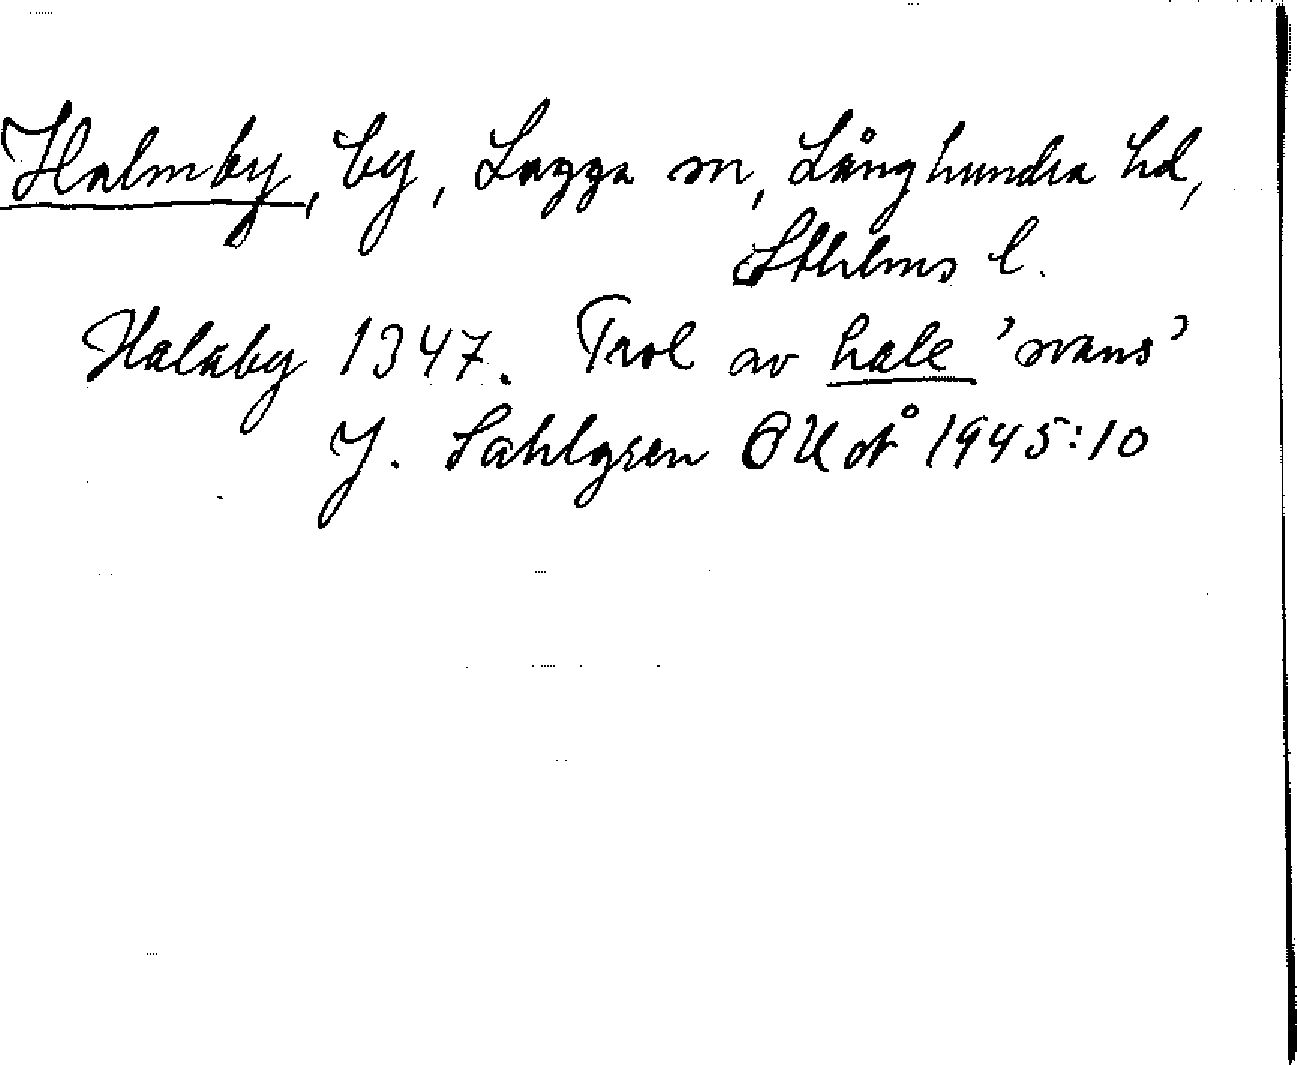 Halmby, by, Lagga sn, Långhundra hd,
Sthlms l.
Halaby 1347. Trol av hale 'svans'
J. Sahlgren OUÅ 1945:10